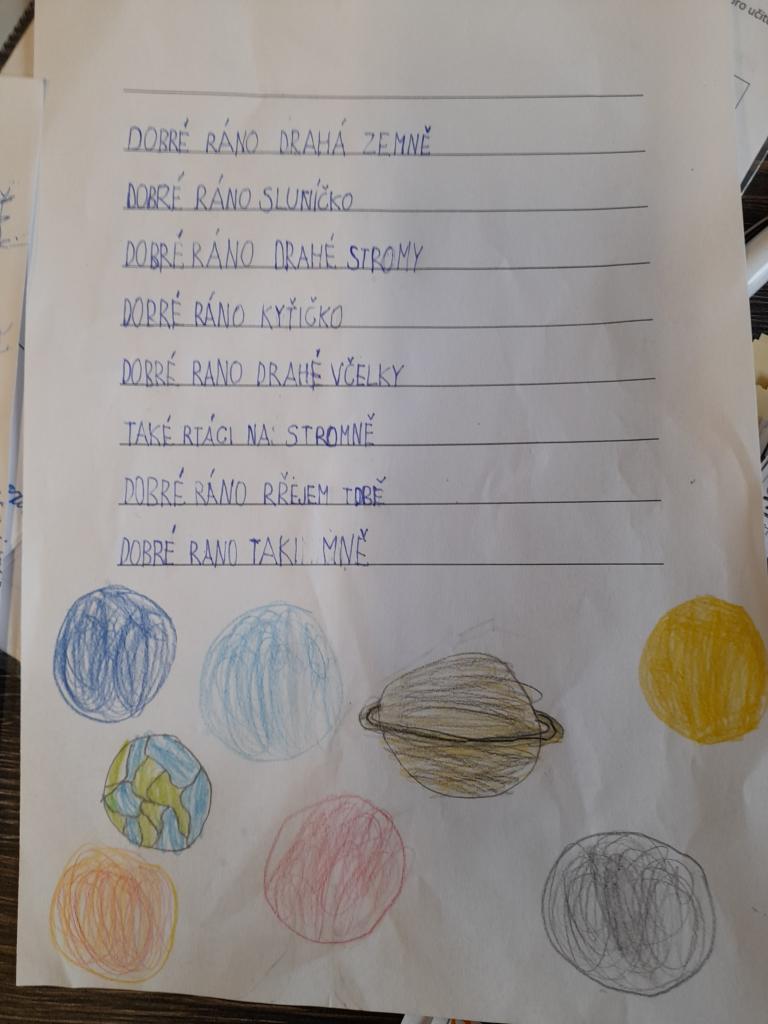 DOBRÉ RÁNO DRAHÁ ZEMNĚ
DOBRÉ RÁNO SLUNÍČKO
DOBRÉ RÁNO DRAHÉ STROMY
DOBRÉ RÁNO KYŤIČKO
DOBRÉ RANO DRAHÉ VČELKY
TAKÉ PTÁCI NA STROMNĚ
DOBRÉ RÁNO PŘEJEM TOBĚ
DOBRÉ RANO TAKII MNĚ